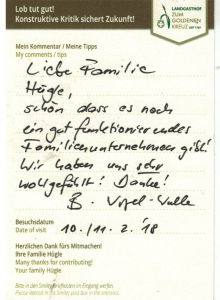 Lob tut gut!
Konstruktive Kritik sichert Zukunft!
LANDGASTHOF
ZUM
GOLDENEN
KREUZ
Mein Kommentar / Meine Tipps
My comments / tips
Liebe Familie
Hügle,
schön dass es noch
ein gut funktionierendes
Familienunternehmen gibt!
Wir haben uns sehr
wohlgefühlt! Danke!
B.
Besuchsdatum
Date of visit
10./11. 2. '18
Herzlichen Dank fürs Mitmachen!
Ihre Familie Hügle
Many thanks for contributing!
Your family Hügle
Bitte in den Smiley-Briefkasten im Eingang werfen.
Please deposit in the Smiley post box in the entrance.